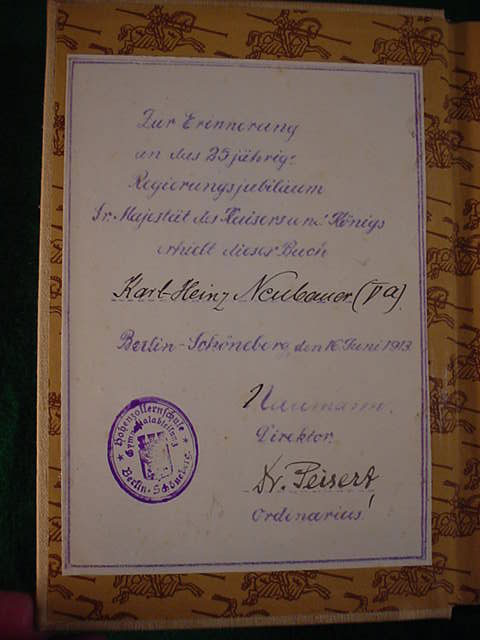 Zur Erinnerung
an das 25jährige
Regierungsjubiläum
Sr. Majestät des Kaisers und Königs
erhielt dieses Buch
Karl-Heinz Neubauer (Va).
Berlin-Schöneberg, den 16. Juni 1913.
Neumann.
Direktor.
Dr. Peisert
Ordinarius.
Hohenzollernschule
Gymnasialabteilung
Berlin-Schöneberg